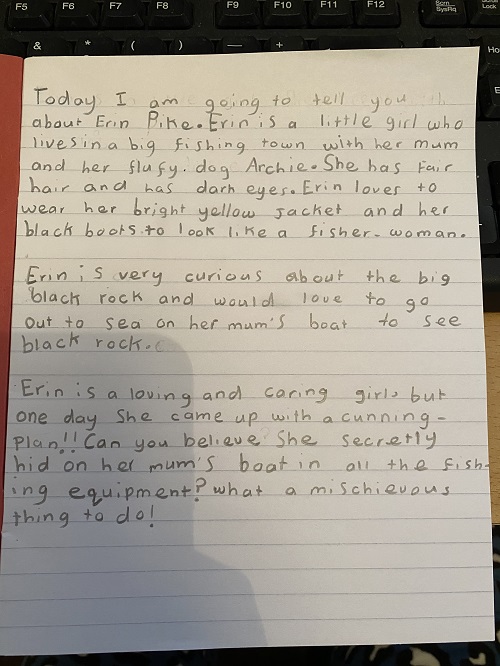 F5 F6 F7 F8 F9 F10 F11 F12 Scrn SysRq Lock
& * ( ) — + Ho
Today I am going to tell you
about Erin Pike. Erin is a little girl who
lives in a big fishing town with her mum
and her flufy. dog Archie. She has Fair
hair and has dark eyes. Erin loves to
wear her bright yellow jacket and her
black boots to look like a fisher-woman.
Erin is very curious about the big
black rock and would love to go
out to sea on her mum's boat to see
black rock.
Erin is a loving and caring girl, but
one day She came up with a cunning-
Plan!! Can you believe She Secretly
hid on her mum's boat in all the fish-
ing equipment? what a mischievous
thing to do!